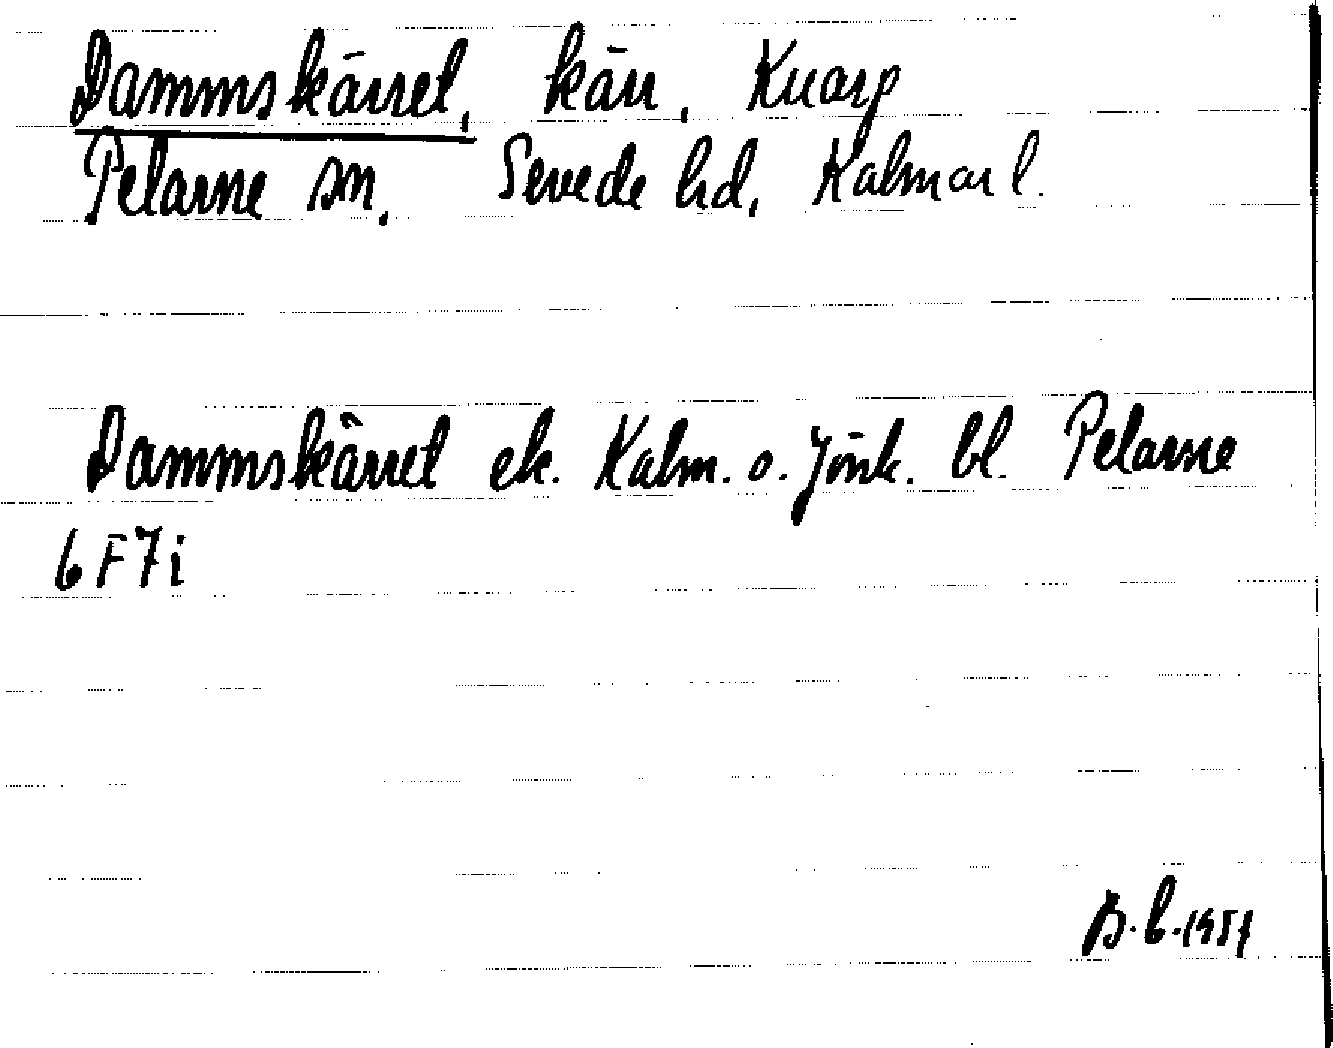 Dammskärret, kärr, Knarp
Pelarne sn, Sevede hd, Kalmar l.
Dammskärret ek. Kalm. o. Jönk. bl. Pelarne
6F7i
B.L.1951